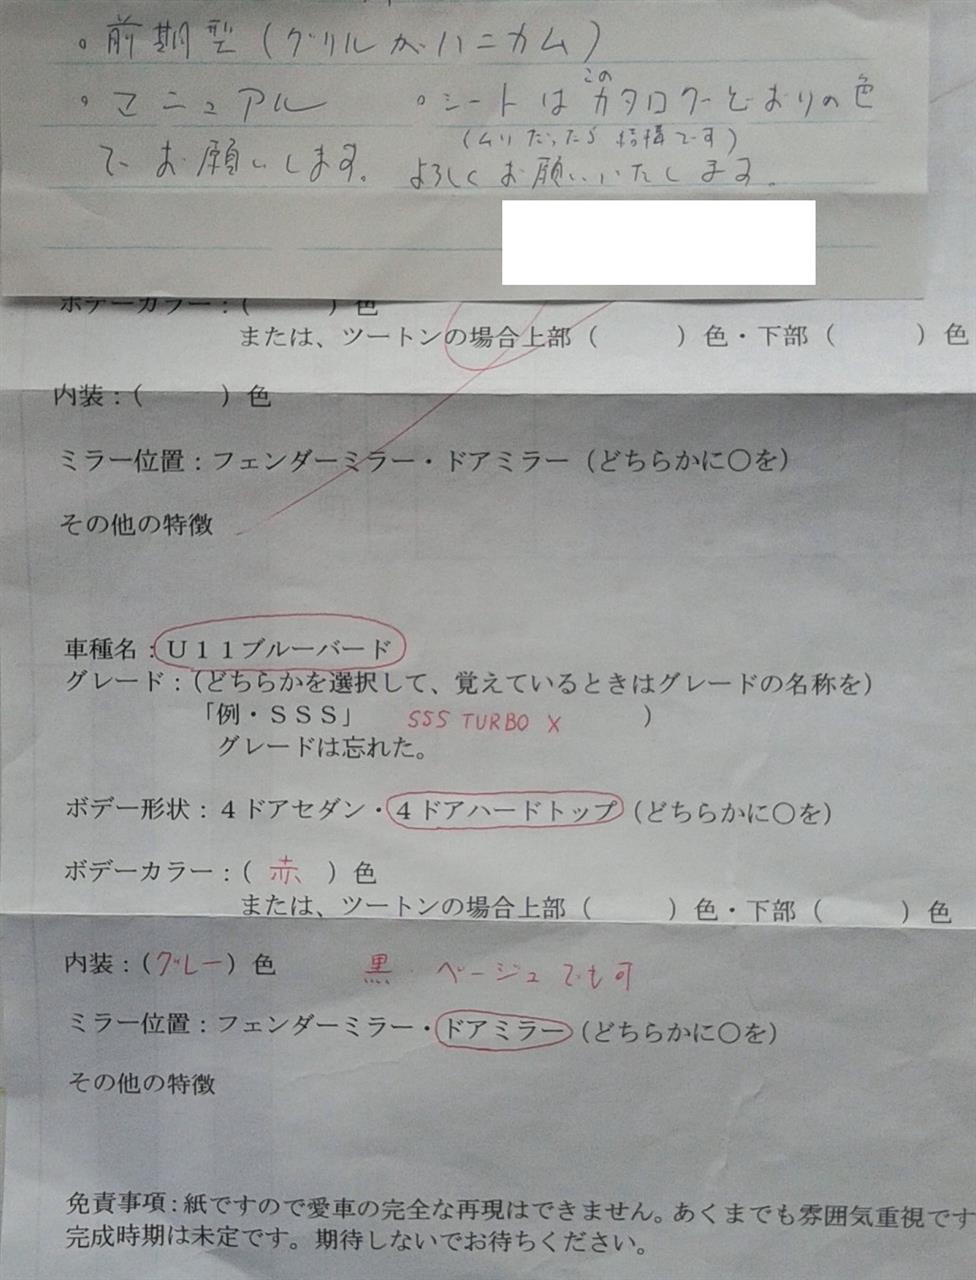 。前期型(グリルがハニカム)
。マニュアル 。シートはこのカタログどおりの色
(ムリだったら結構です)
でお願いします。 よろしくお願いいたします。
ボデーカラー：( )色
または、ツートンの場合上部( )色・下部( )色
内装：( )色
ミラー位置：フェンダーミラー・ドアミラー(どちらかに〇を)
その他の特徴
車種名：U11ブルーバード
グレード：(どちらかを選択して、覚えているときはグレードの名称を)
「例・SSS」 SSS TURBO X )
グレードは忘れた。
ボデー形状：4ドアセダン・4ドアハードトップ(どちらかに〇を)
ボデーカラー：(赤)色
または、ツートンの場合上部( )色・下部( )色
内装：(グレー)色 黒・ベージュでも可
ミラー位置：フェンダーミラー・ドアミラー(どちらかに〇を)
その他の特徴
免責事項：紙ですので愛車の完全な再現はできません。あくまでも雰囲気重視です
完成時期は未定です。期待しないでお待ちください。